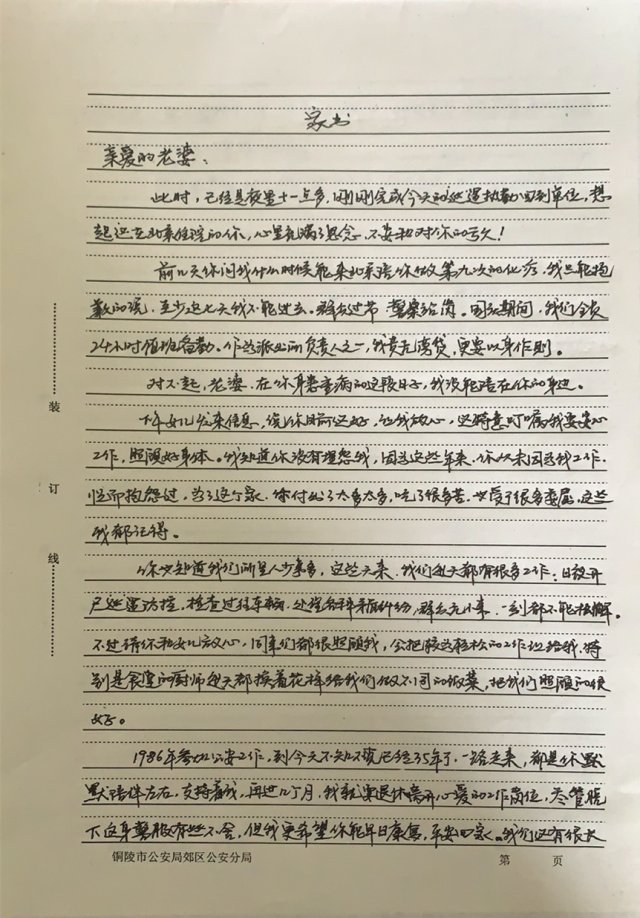 家书
亲爱的老婆：
此时，已经是夜里十一点多，刚刚完成今天的巡逻执勤回到单位，想
起远在北京住院的你，心里充满了思念、不安和对你的亏欠！
前几天你问我什么时候能来北京陪你做第九次的化疗，我只能抱
歉的说，至少这七天我不能过去。群众过节 警察站岗。国庆期间，我们全员
24小时值班备勤。作为派出所负责人之一，我责无旁贷，更要以身作则。
对不起，老婆，在你身患重病的这段日子，我没能陪在你的身边。
下午女儿发来信息，说你目前还好，让我放心，还特意叮嘱我要安心
工作，照顾好身体。我知道你没有埋怨我，因为这些年来，你从未因为我工作
忙而抱怨过，为了这个家，你付出了太多太多，吃了很多苦，也受了很多委屈，这些
我都记得。
你也知道我们所里人少事多，这些天来，我们每天都有很多工作：日夜开
展巡逻防控，检查过往车辆，处理各种矛盾纠纷，群众无小事，一刻都不能松懈。
不过请你和女儿放心，同事们都很照顾我，会把较为轻松的工作让给我，特
别是食堂的厨师每天都换着花样给我们做不同的饭菜，把我们照顾的很
好。
1986年参加公安工作，到今天不知不觉已经35年了，一路走来，都是你默
默陪伴左右，支持着我，再过几个月，我就要退休离开心爱的工作岗位，尽管脱
下这身警服有些不舍，但我更希望你能早日康复，平安回家。我们还有很长
装
订
线
铜陵市公安局郊区公安分局
第 页